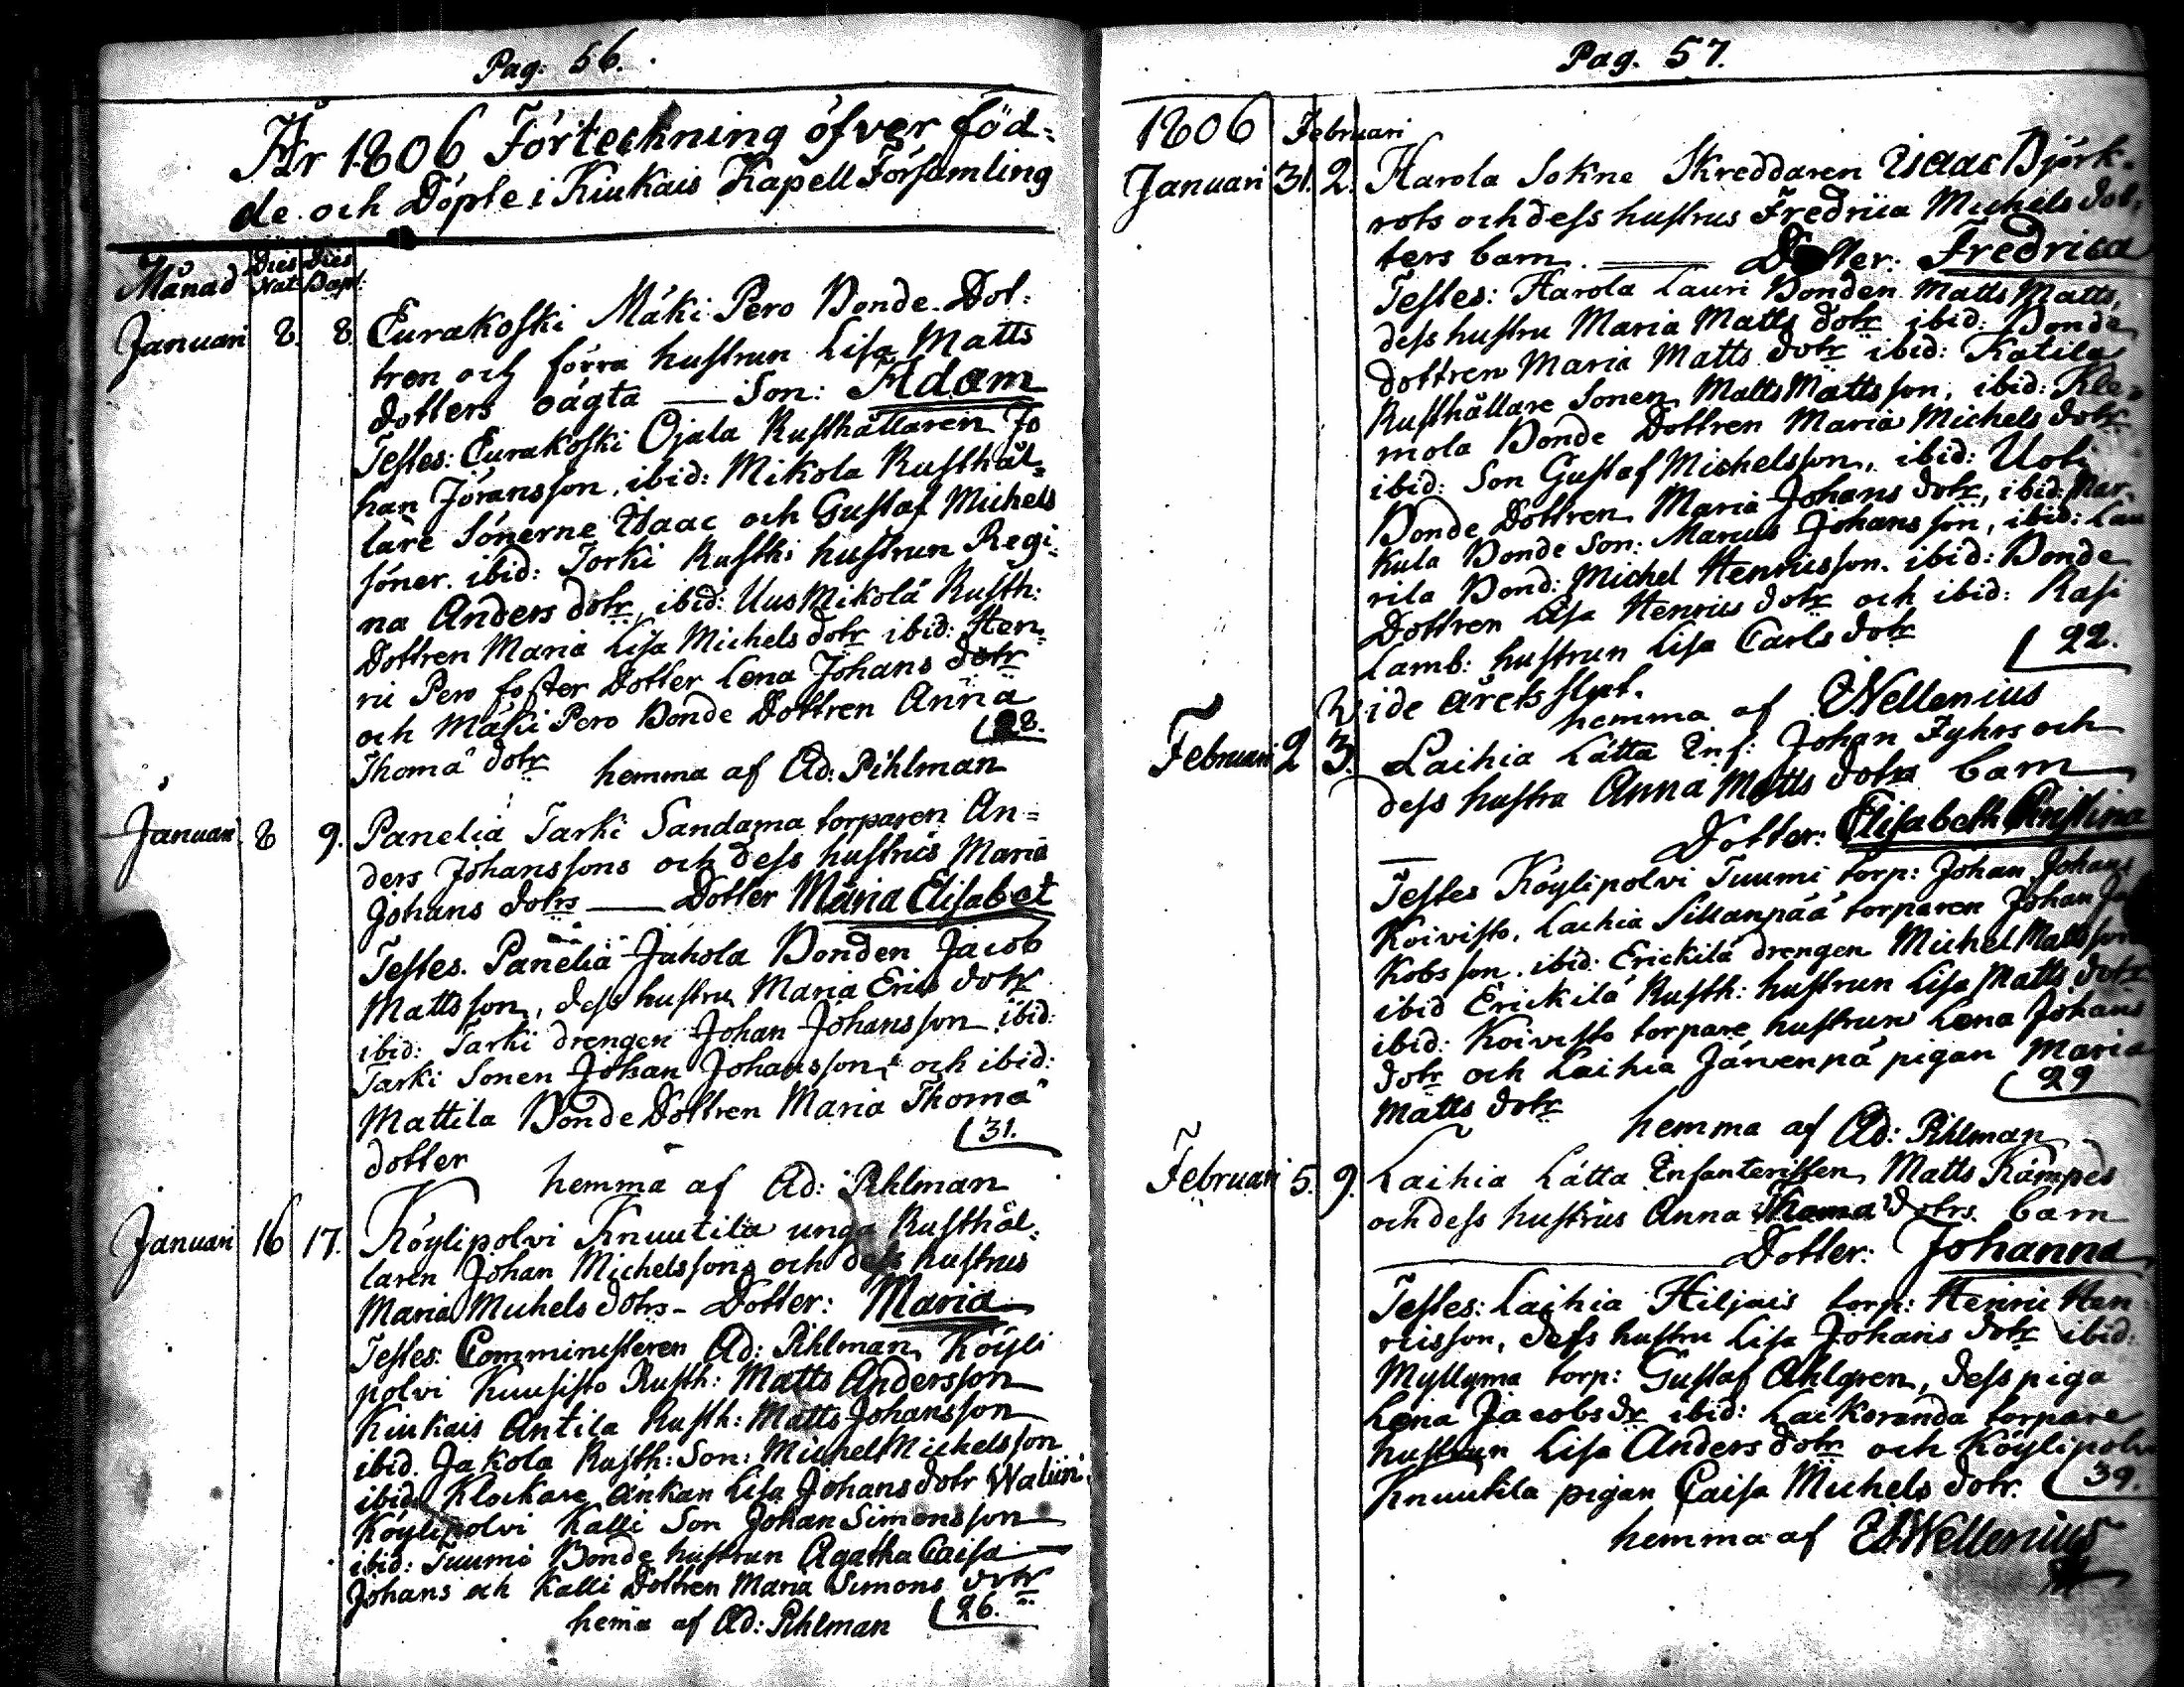 Pag. 56.
År 1806 Förteckning öfver föd=
de och Döpte i Kiukais Kapell Församling
Månad
Dies Nat:
Dies Bapt:
Januari 8. 8. Eurakoski Mäki Pero Bonde Dot:
tren och förra hustrun Lisa Matts
dotters oägta — Son: Adam
Testes: Eurakoski Ojala Rusthållaren Jo
han Jöransson, ibid: Mikola Rusthål=
lare Sönerne Isaac och Gustaf Michels
söner. ibid: Torki Rusth: hustrun Regi=
na Anders dotr, ibid: Uus Mikolä Rusth:
Dottren Maria Lisa Michels dotr ibid: Hen=
ric Pero foster Dotter Lena Johans dotr
och Mäki Pero Bonde Dottren Anna
Thomä dotr (28.
hemma af Ad: Pihlman
Januari 8 9. Panelia Tarki Sandama torparen An=
ders Johanssons och dess hustrus Maria
Johans dotrs — Dotter Maria Elisabet
Testes. Panelia Jahola Bonden Jacob
Mattsson, dess hustru Maria Erics dotr
ibid: Tarki drengen Johan Johansson ibid:
Tarki Sonen Johan Johansson, och ibid:
Mattila Bonde Dottren Maria Thomä
dotter (31.
hemma af Ad: Pihlman
Januari 16 17. Köylipolvi Knuutila unga Rusthål=
laren Johan Michelssons och dess hustrus
Maria Michels dotrs - Dotter: Maria
Testes: Comministeren Ad: Pihlman, Köyli
polvi Kuusisto Rusth: Matts Andersson
Kiukais Antila Rusth: Matts Johansson
ibid. Jakola Rusth: Son: Michel Michelsson
ibid: Klockare änkan Lisa Johans dotr Walün
Köylipolvi Kalli Son Johan Simonsson
ibid: Tuumi Bonde hustrun Agatha Caisa
Johans och Kalli Dottren Maria Simons dotr
(26.
hemma af Ad: Pihlman
Pag. 57.
1806 Februari
Januari 31. 2. Harola Sokne Skreddaren Isaac Björk=
rots och dess hustrus Fredrica Michels dot=
ters barn. — Dotter: Fredrica
Testes: Harola Lauri Bonden Matts Matts,
dess hustru Maria Matts dotr ibid: Bonde
dottren Maria Matts dotr ibid: Katila
Rusthållare Sonen Matts Mattsson, ibid: Kle=
mola Bonde Dottren Maria Michels dotr
ibid: Son Gustaf Michelsson, ibid: Uoti
Bonde Dottren Maria Johans dotr, ibid: Mar=
kula Bonde Son: Marcus Johansson, ibid: Lau
rila Bond: Michel Henricsson. ibid: Bonde
Dottren Lisa Henrics dotr och ibid: Rasi
Lamb: hustrun Lisa Carls dotr (22.
Vide årets slut.
hemma af Wellenius
Februari 2 3. Laihia Lätta Inf: Johan Fyhrs och
dess hustru Anna Matts dotrs barn
Dotter: Elisabeth Christina
Testes Köylipolvi Tuumi torp: Johan Johans
Koivisto, Laihia Sillanpää torparen Johan Ja
kobsson. ibid: Erickilä drengen Michel Mattsson
ibid Erickilä Rusth: hustrun Lisa Matts dotr
ibid: Koivisto torpare hustrun Lena Johans
dotr och Laihia Järvenpä pigan Maria
Matts dotr (29
hemma af Ad: Pihlman
Februari 5. 9. Laihia Lätta Infanteristen Matts Kämpes
och dess hustrus Anna Thomä dotrs barn
Dotter: Johanna
Testes: Laihia Hiljais torp: Henric Hen
ricsson, dess hustru Lisa Johans dotr ibid:
Myllymä torp: Gustaf Ahlgren, dess piga
Lena Jacobs dr ibid: Laikoranda torpare
hustrun Lisa Anders dotr och Köylipolvi
Knuutila pigan Caisa Michels dotr. (39.
hemma af Wellenius